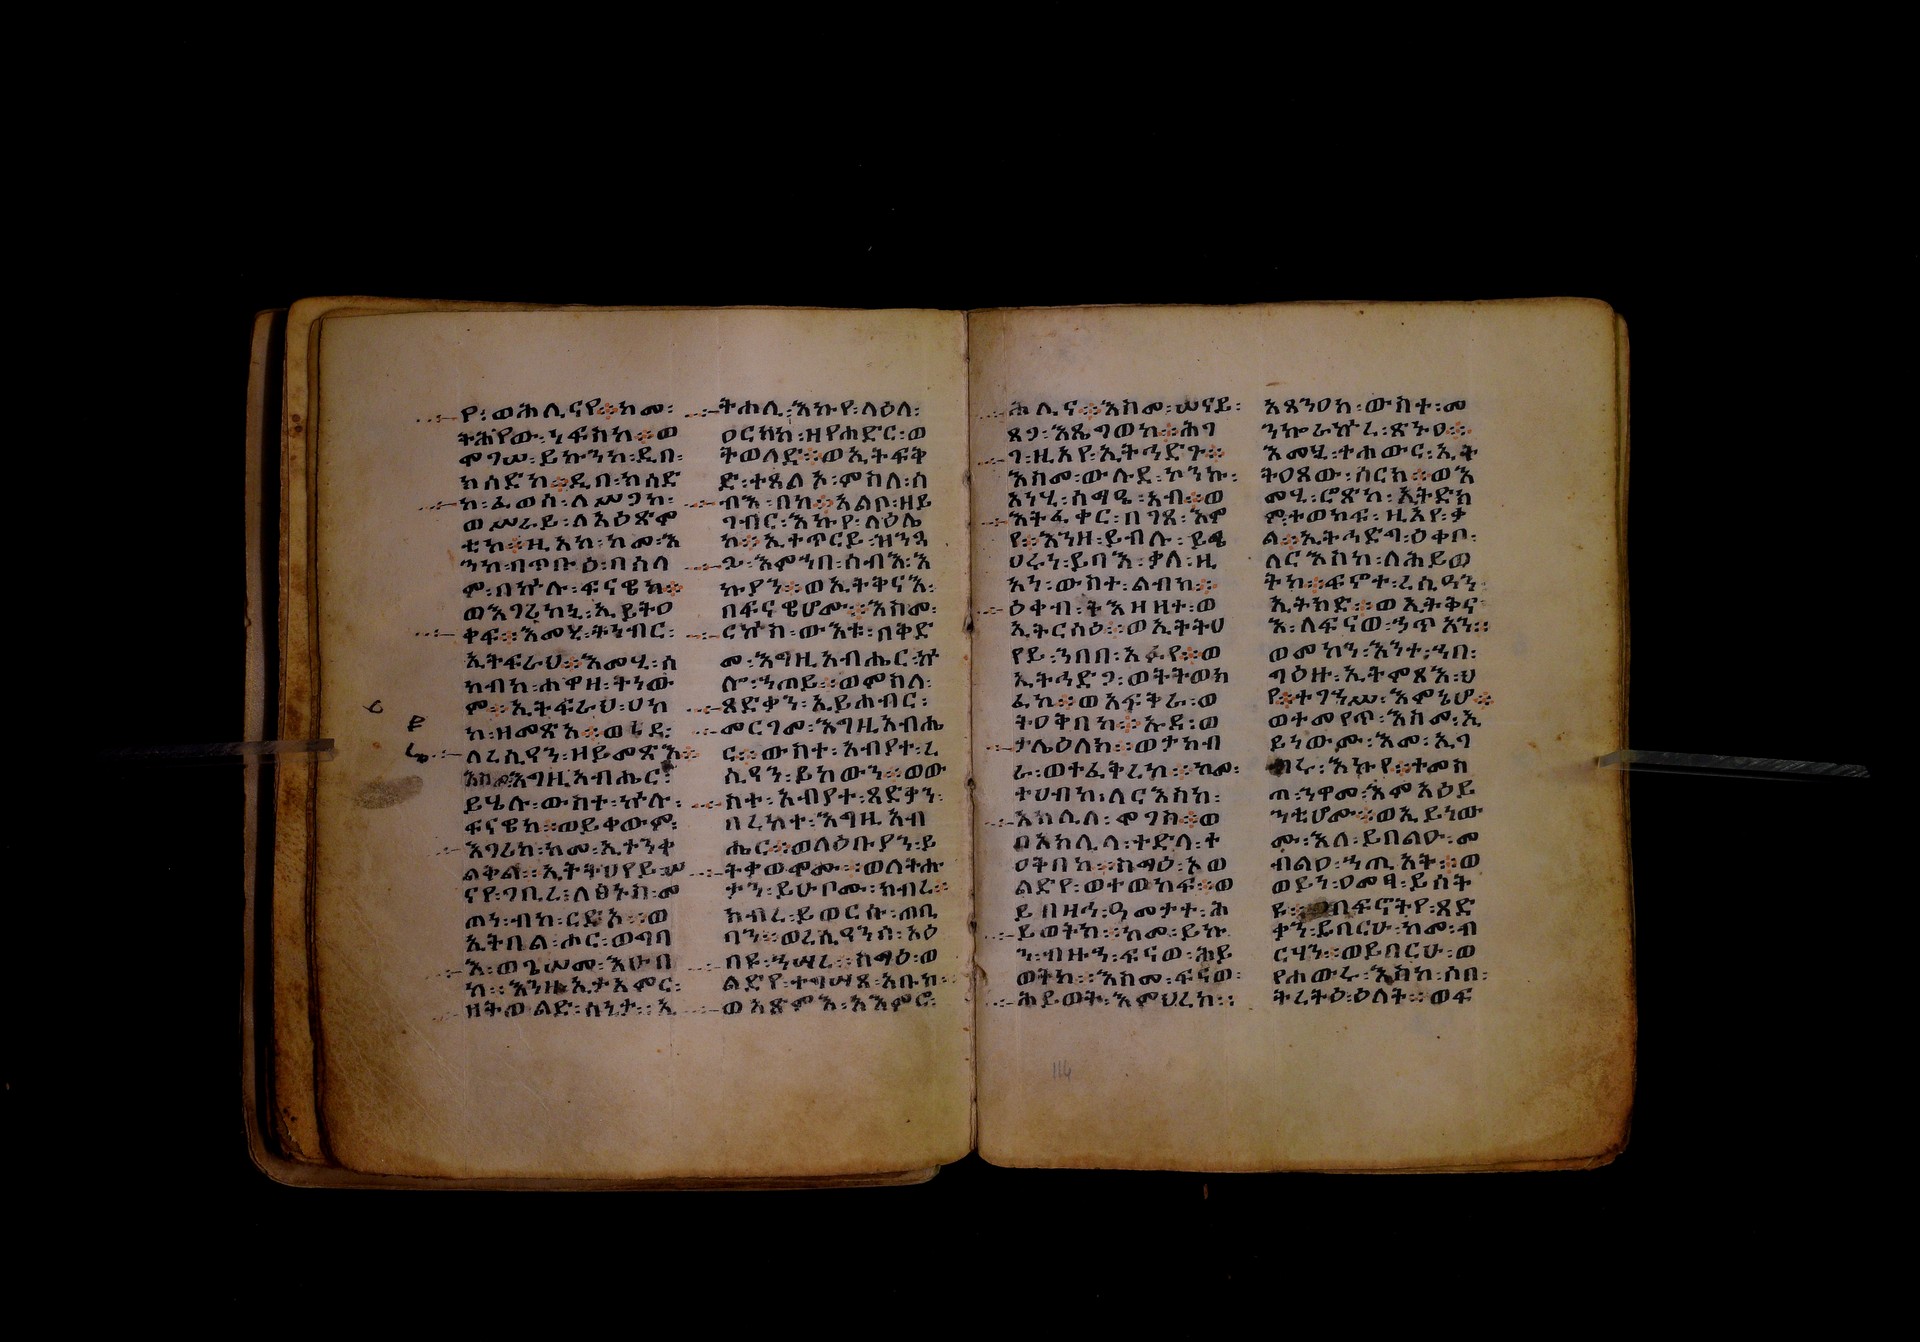 የ፡ወሕሊናየ፡፡ከመ፡
ትሕየው፡ነፍስከ፡፡ወ
ሞገሠ፡ይኩንከ፡ዲበ፡
ክሳድከ፡፡ዲበ፡ከሰድ
ከ፡ፈወስ፡ለሥጋከ፡
ወሥራይ፡ለአዕጽም
ቲከ፡፡ዚአከ፡ከመ፡እ
ንከ፡ብጥቡዕ፡በሰላ
ም፡በኵሉ፡ፍናዊከ፡፡
ወእገሪከኒ፡ኢይትዐ
ቀፍ፡፡እመሂ፡ትነብር፡
ኢትፍራህ፡፡እመሂ፡ሰ
ከብከ፡ሐዋዘ፡ትነው
ም፡፡ኢትፍራህ፡ሀከ
ከ፡ዘመጽአ፡፡
ለረሲዓን፡ዘይመጽእ፡፡
እስመ፡እግዚአብሔር፡
ይሄሉ፡ውስተ፡ኵሉ፡
ፍናዊከ፡፡ወይቀውም፡
እገሪከ፡ከመ፡ኢተንቀ
ልቅል፡፡ኢትትሀየይ፡ሠ
ናየ፡ገቢረ፡ለፅኑስ፡መ
ጠነ፡ብከ፡ርድአ፡፡ወ
ኢትበል፡ሖር፡ወግባ
እ፡ወጌሠመ፡እሁበ
ከ፡፡እንዘ፡ኢታአምር፡
ዘትወልድ፡ሰኔታ፡፡ኢ
ትሐሊ፡እኩየ፡ላዕለ፡
ዐርክከ፡ዘየሐድር፡ወ
ትወለድ፡፡ወኢትፍቅ
ድ፡ተጻልኦ፡ምስለ፡ሰ
ብእ፡በከ፡፡አልቦ፡ዘይ
ገብር፡እኩየ፡ላዕሌ
ከ፡፡ኢተጥርይ፡ዝንጓ
ጔ፡እምኀበ፡ሰብእ፡እ
ኩያን፡፡ወኢትቅናእ፡
በፍናዊሆሙ፡፡እስመ፡
ርኩስ፡ውእቱ፡በቅድ
መ፡እግዚአብሔር፡ኵ
ሎ፡ኀጠይ፡፡ወምስለ፡
ጻድቃን፡ኢይሐብር፡
መርገመ፡እግዚአብሔ
ር፡፡ውስተ፡አብያተ፡ረ
ሲዓን፡ይከውን፡፡ወው
ስተ፡አብያተ፡ጻድቃን፡
በረከተ፡እግዚአብ
ሔር፡፡ወለዕቡያን፡ይ
ትቃወሞሙ፡፡ወለትሑ
ታን፡ይሁቦሙ፡ክብረ፡፡
ክብረ፡ይወርሱ፡ጠቢ
ባን፡፡ወረሲዓንሰ፡አዕ
በዩ፡ኀሣረ፡፡ስማዕ፡ወ
ልድየ፡ተግሣጸ፡አቡከ፡፡
ወአጽምእ፡አእምሮ፡
ሕሊና፡፡እስመ፡ሠናይ፡
ጸጋ፡እጼግወከ፡፡ሕገ
ገ፡ዚአየ፡ኢትኅድጉ፡፡
እስመ፡ውሉደ፡ኮንኩ፡
አነሂ፡ስማዔ፡አብ፡፡ወ
እትፈቀር፡በገጸ፡እም
የ፡፡እንዘ፡ይብሉ፡ይሜ
ህሩነ፡ይባእ፡ቃለ፡ዚ
አነ፡ውስተ፡ልብከ፡፡
ዕቀብ፡ትእዛዘተ፡ወ
ኢትርሳዕ፡፡ወኢትትሀ
የይ፡ነበበ፡አፉየ፡፡ወ
ኢትኅድጋ፡ወትትወክ
ፈከ፡፡ወአፍቅራ፡ወ
ትዐቅበከ፡፡ኡዳ፡ወ
ታሌዕለከ፡፡ወታከብ
ራ፡ወተፈቅረከ፡፡ከመ፡
ተሀብከ፡ለርእስከ፡
አክሊለ፡ሞገስ፡፡ወ
በአክሊላ፡ተድላ፡ተ
ዐቅበከ፡፡ስማዕ፡ኦወ
ልድየ፡ወተወከፍ፡፡ወ
ይበዝኅ፡ዓመታተ፡ሕ
ይወትከ፡፡ከመ፡ይኩ
ን፡ብዙኅ፡ፍናወ፡ሕይ
ወትከ፡፡እስመ፡ፍናወ፡
ሕይወት፡እምህረከ፡፡
አጸንዐከ፡ውስተ፡መ
ንኰራኵረ፡ጽንዐ፡፡
እመሂ፡ተሐውር፡ኢት
ትዐጸው፡ሰርከ፡፡ወእ
መሂ፡ሮጽከ፡ኢትድክ
ም፡ተወከፍ፡ዚአየ፡ቃ
ል፡፡ኢትኅድግ፡ዕቀቦ፡
ለርእስከ፡ለሕይወ
ትከ፡፡ፍኖተ፡ረሲዓን፡
ኢትከድ፡፡ወኢትቅና
እ፡ለፍናወ፡ኃጥአን፡፡
ወመከን፡እንተ፡ኀበ፡
ግዕዙ፡ኢትምጻእ፡ህ
የ፡፡ተገኀሥ፡እምኔሆ፡፡
ወተመየጥ፡እስመ፡ኢ
ይነውሙ፡እመ፡ኢገ
ብሩ፡እኩየ፡፡ተመስ
ጠ፡ንዋመ፡እምአዕይ
ንቲሆሙ፡፡ወኢይነው
ሙ፡እለ፡ይበልዑ፡መ
ብልዐ፡ኀጢአት፡፡ወ
ወይነ፡ዐመፃ፡ይሰት
ዩ፡፡ወበፍኖትየ፡ጻድ
ቃን፡ይበርሁ፡ከመ፡ብ
ርሃን፡፡ወይበርሁ፡ወ
የሐውሩ፡እስከ፡ሶበ፡
ትረትዕ፡ዕለት፡፡ወፍ
114